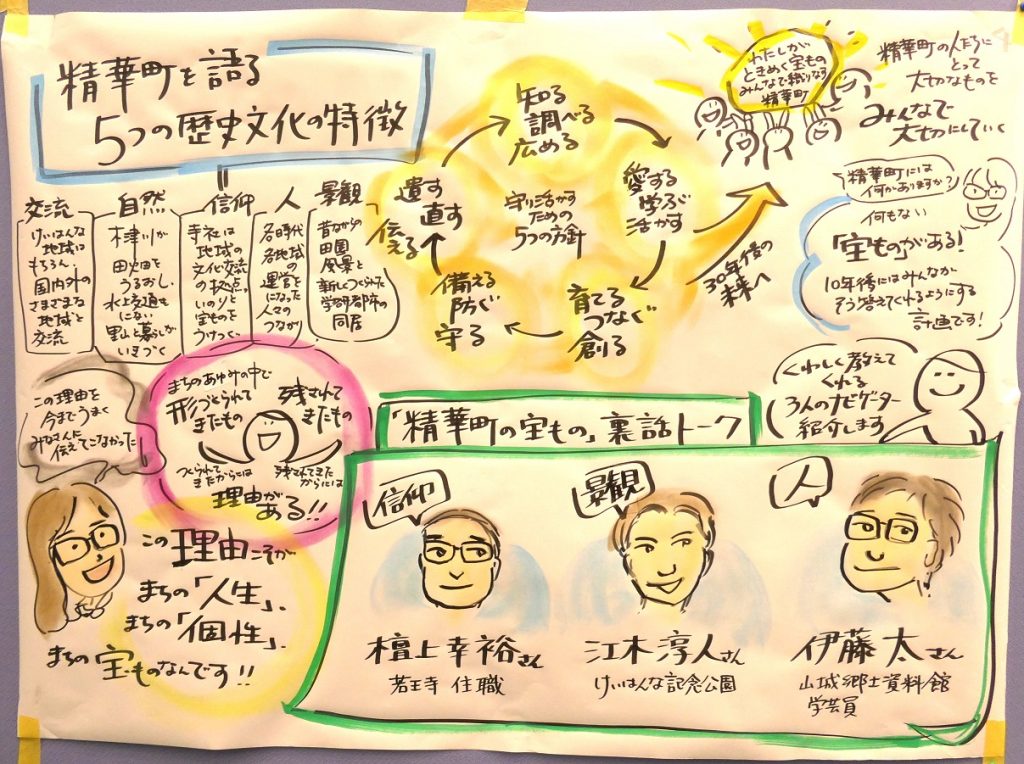 精華町を語る
5つの歴史文化の特徴
交流
けいはんな
地域は
もちろん、
国内外の
さまざまな
地域と
交流
自然
木津川が
田畑を
うるおし、
水上交通も
にない
里山と暮らしが
いきづく
信仰
寺社は
地域の
文化交流
の拠点。
いのりと
宝ものを
うけつぐ
人
各時代
各地域
の
運営を
になった
人々の
つながり
景観
昔ながらの
田園
風景と
新しくつくられた
学研都市の
同居
知る
調べる
広める
愛する
学ぶ
活かす
育てる
つなぐ
創る
備える
防ぐ
守る
遺す
直す
伝える
守り活かす
ための
5つの方針
30年後の
未来へ
わたしが
ときめく宝もの
みんなで織りなす
精華町
精華町の人たちに
とって
大切なものを
みんなで
大切にしていく
精華町には
何がありますか?
何もない
「宝もの」がある!
10年後にはみんなが
そう答えてくれるようにする
計画です!
くわしく教えて
くれる
3人のナビゲーター
紹介します
この理由を
今までうまく
みなさんに
伝えてこなかった
まちのあゆみの中で
形づくられて
きたもの
残されて
きたもの
つくられて
きたからには
残されてきた
からには
理由が
ある!!
この理由こそが
まちの「人生」、
まちの「個性」、
まちの宝ものなんです!!
「精華町の宝もの」裏話トーク
信仰
檀上幸裕さん
若王寺 住職
景観
江木淳人さん
けいはんな記念公園
人
伊藤太さん
山城郷土資料館
学芸員